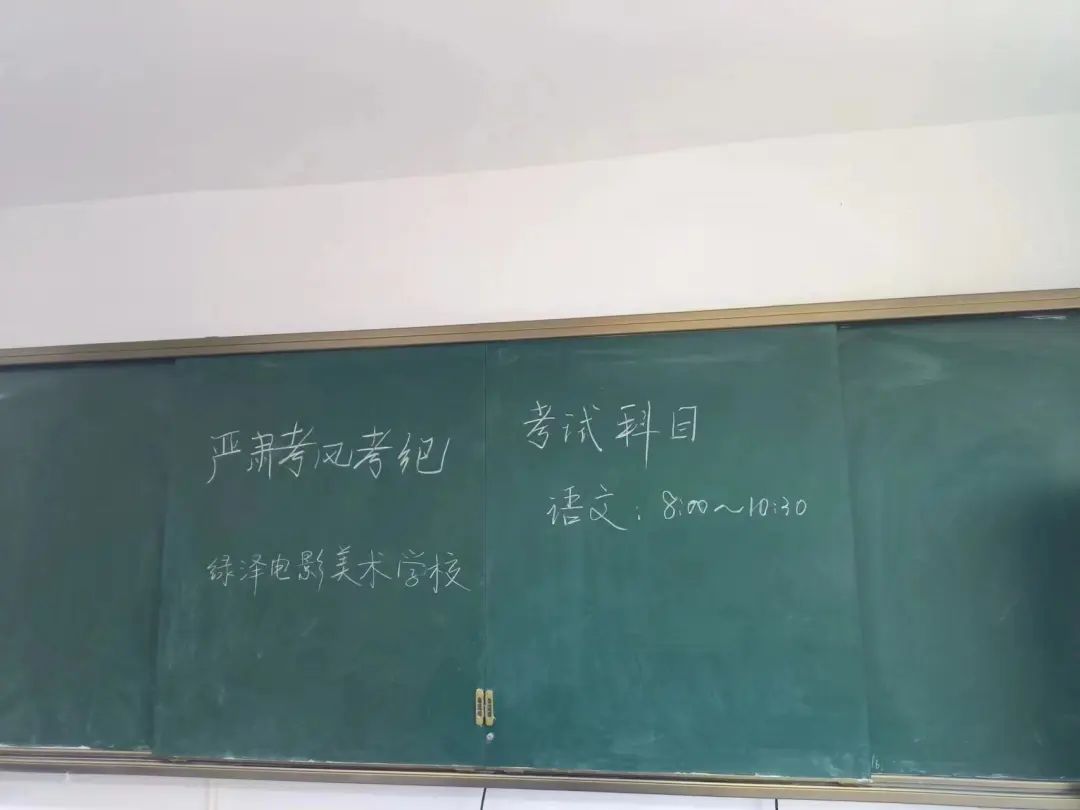 严肃考风考纪
绿泽电影美术学校
考试科目
语文：8:00~10:30
16